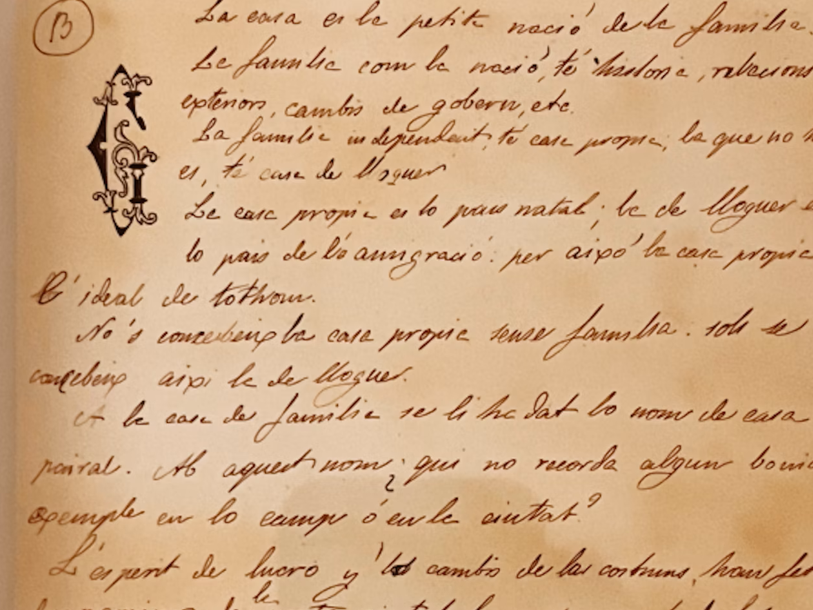 B
La casa es la petita nació de la familia.
La familia com la nació, té historia, relacions
exteriors, cambis de gobern, etc.
La familia independent, té casa propia; la que no
es, té casa de lloguer
La casa propia es lo pais natal; la de lloguer
lo pais de la amigració: per aixó la casa propia
l'ideal de tothom.
No's concebeix la casa propia sense familia. sols se
concebeix aixi la de lloguer.
A la casa de familia se li ha dat lo nom de casa
pairal. Ab aquest nom ¿qui no recorda algun
exemple en lo camp ó en la ciutat?
L'esperit de lucro y los cambis de las costums, han
la